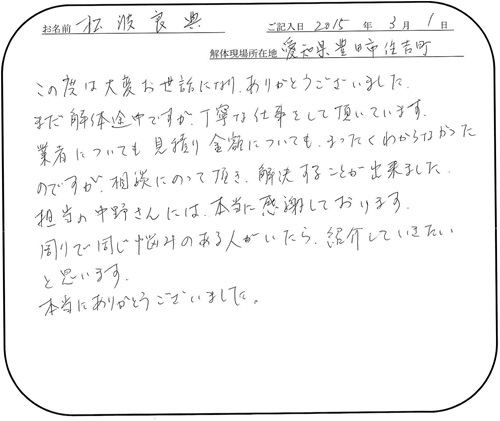 お名前 松波良典 ご記入日 2015 年 3 月 1 日
解体現場所在地 愛知県豊田市住吉町
この度は大変お世話になり、ありがとうございました。
まだ解体途中ですが、丁寧な仕事をして頂いています。
業者についても見積り金額についても、まったくわからなかった
のですが、相談にのって頂き、解決することが出来ました。
担当の中野さんには、本当に感謝しております。
周りで同じ悩みのある人がいたら、紹介していきたい
と思います。
本当にありがとうございました。